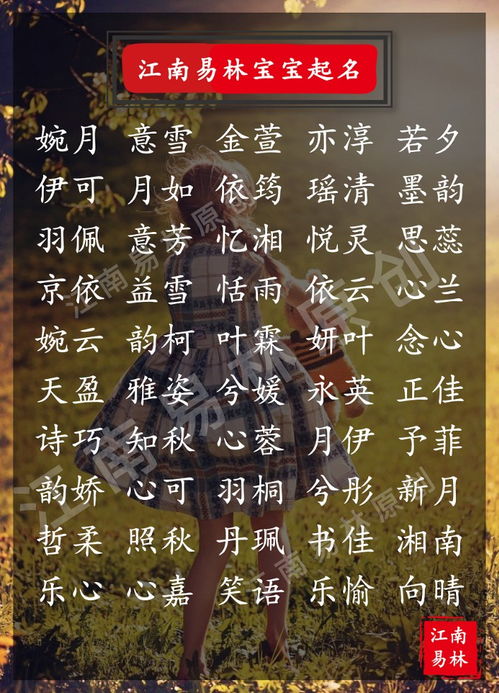 江南易林宝宝起名
婉月 意雪 金萱 亦淳 若夕
伊可 月如 依筠 瑶清 墨韵
羽佩 意芳 忆湘 悦灵 思蕊
京依 益雪 恬雨 依云 心兰
婉云 韵柯 叶霖 妍叶 念心
天盈 雅姿 兮媛 永英 正佳
诗巧 知秋 心蓉 月伊 予菲
韵娇 心可 羽桐 兮彤 新月
哲柔 照秋 丹珮 书佳 湘南
乐心 心嘉 笑语 乐愉 向晴
江南
易林
江南易林原创